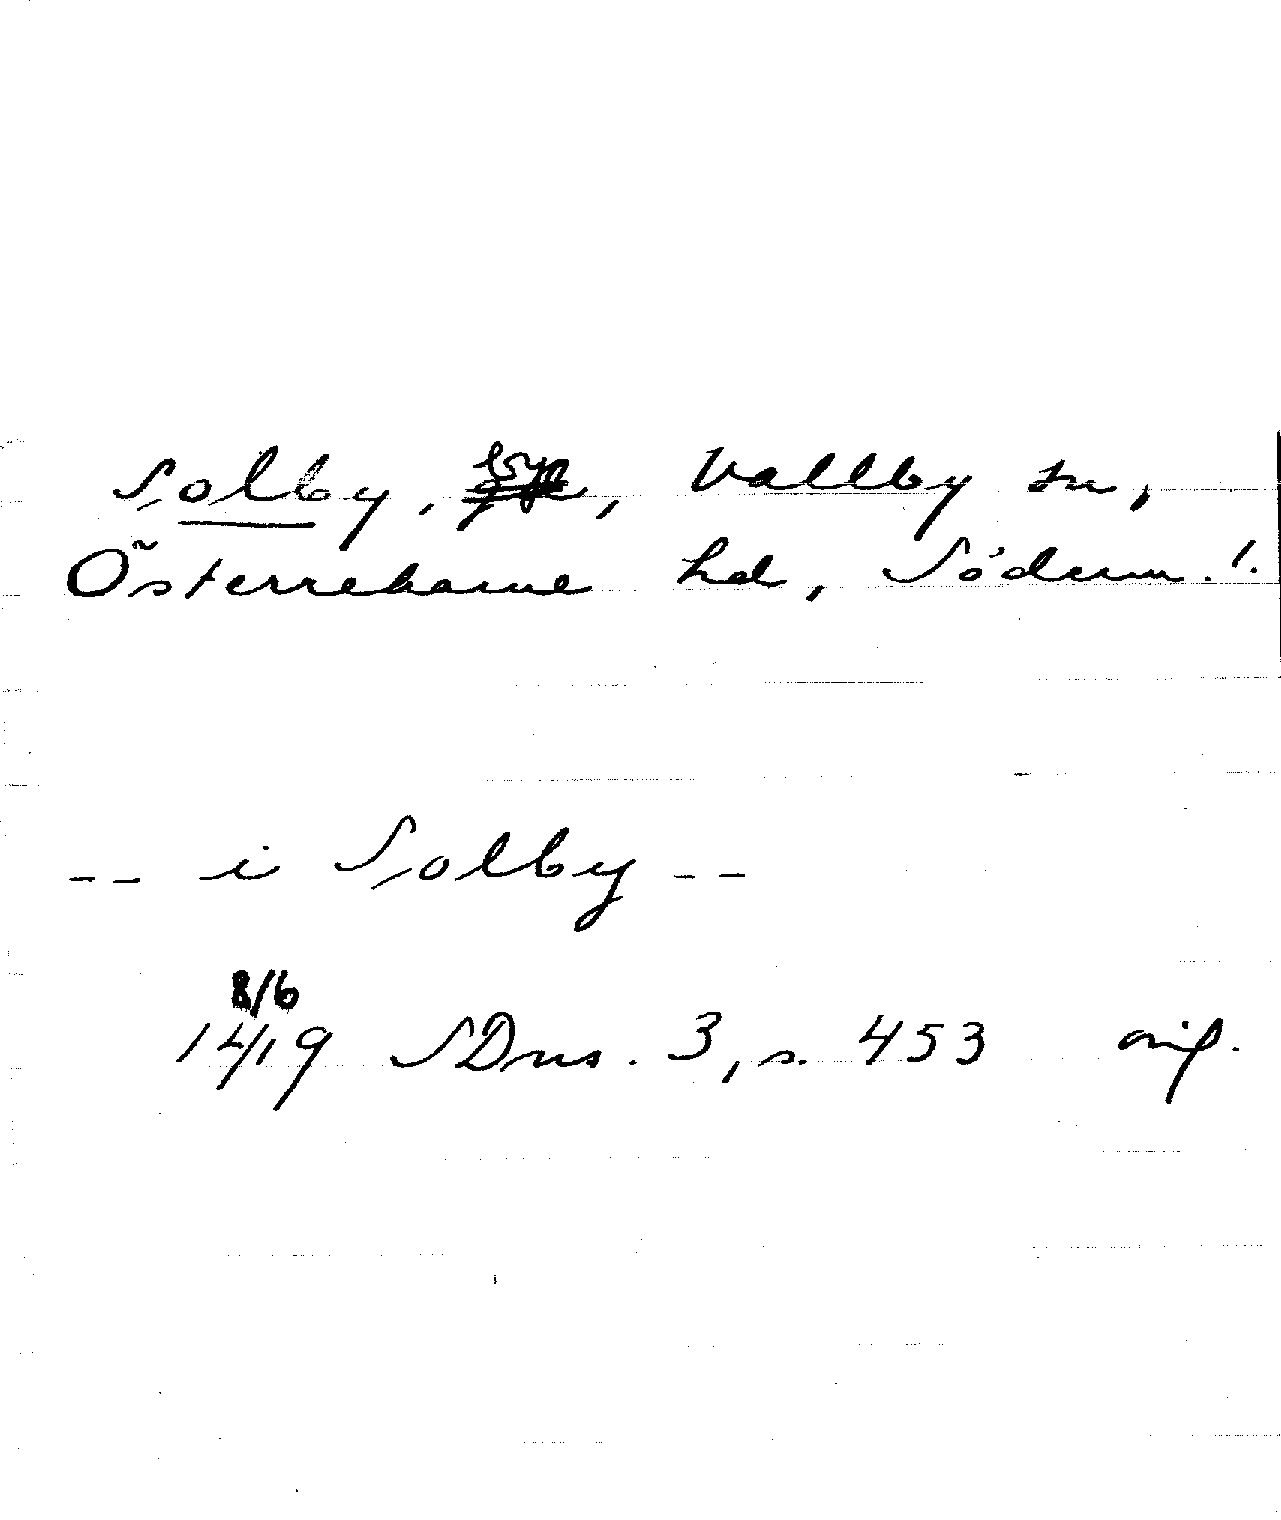 Solby, by, Vallby sn,
Österrekarne hd, Söderm. l.
-- i Solby --
8/6
1419 SDns. 3, s. 453 orig.